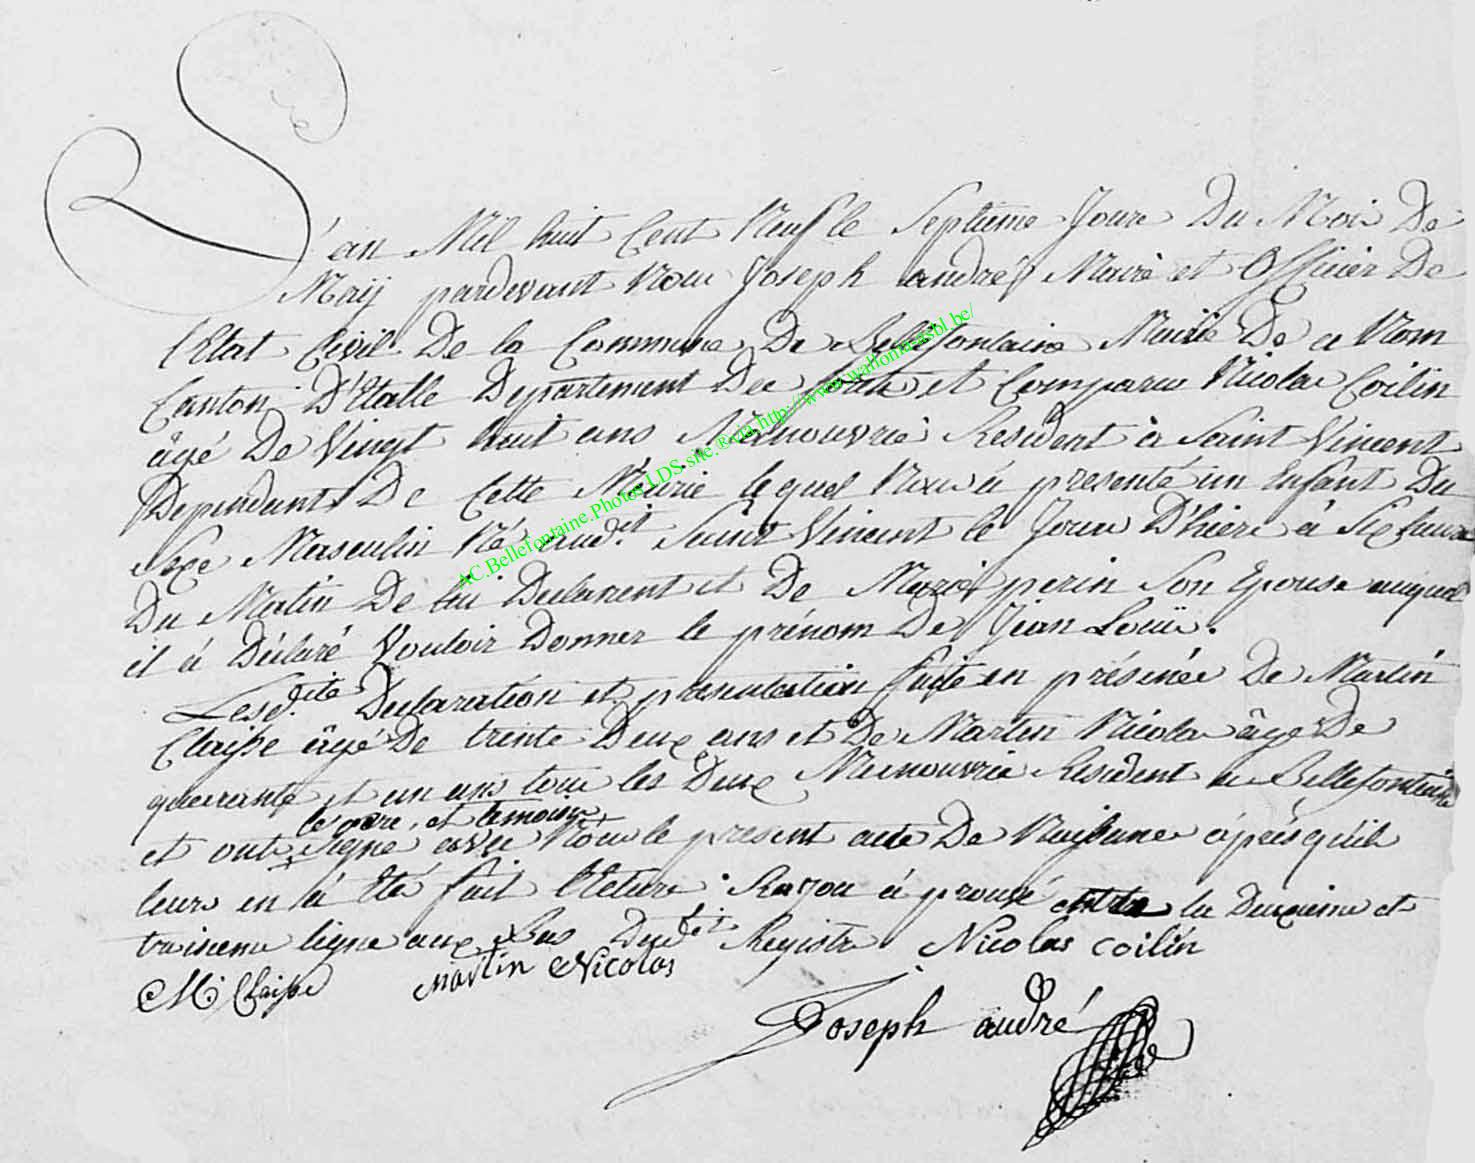 L'an Mil huit Cent Neuf le Septieme Jour Du Mois De
Maij pardevant Nous Joseph andré Maire et Officier De
l'Etat Civil De la Commune De Bellefontaine Mairie De ce Nom
Canton D'Etalle Departement Des et Comparu Nicolas Coilin
âgé De Vingt huit ans Manouvrié Resident à Saint Vincent
Dependant De Cette Mairie lequel Nous à presenté un Enfant Du
Sexe Masculin Né aud.it Saint Vincent le Jour D'hière à Six heure
Du Matin De lui Declarent et De Marie perin Son Epouse auquel
il à Déclaré Vouloir Donner le prénom De Jean Louis.
Lesd.ite Declaration et presentation faite en présence De Martin
Claisse âgé De trente Deux ans et De Martin Nicolas âgé De
quarante et un ans tous les Deux Manouvrié Resident a Bellefontaine
le pere, et temoins
et ont Signé avec Nous le present acte De Naissance après qu'il
leurs en à été fait lecture. Rayou à prouvé entre la Deuxieme et
troiseme ligne aux Bas Dud.it Registre Nicolas coilin
M: Claisse Martin Nicolas
Joseph andré
AC.Bellefontaine.Photos.LDS-site.®via.http://www.wallonia.asbl.be/